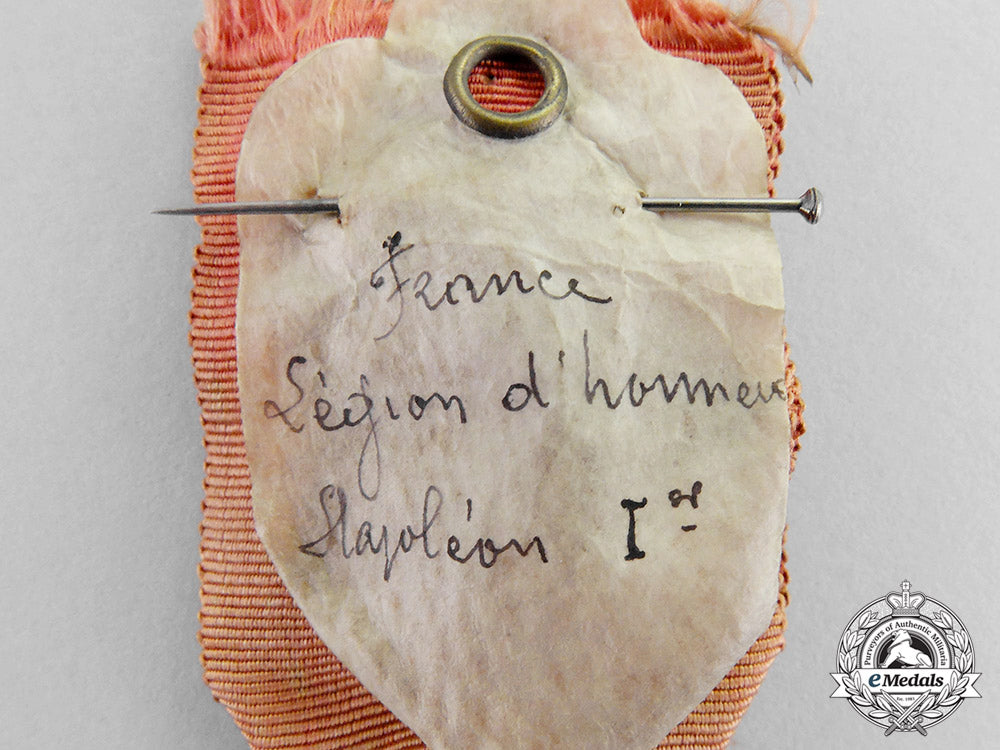 France
Légion d'honneur
Napoléon Ier
Purveyors of Authentic Militaria
eMedals
Est. 1985